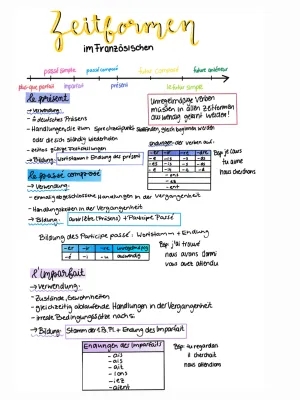 Zeitformen
im Französischen
passé simple passé composé futur composé futur antérieur
plus-que-parfait imparfait présent le futur simple
le présent
→ Verwendung:
- Handlungen, die zum Sprechzeitpunkt stattfinden, gleich beginnen werden
oder die sich ständig wiederholen
- zeitlos gültige Sachaussagen
→ Bildung: Wortstamm + Endung des présent
Unregelmäßige Verben
müssen in allen Zeitformen
auswendig gelernt werden!
Endungen der Verben auf:
-er -ir -re
-e -is -s
-es -is -s
-e -it
-ons
-ez
-ent
Bsp: je
tu aime
nous cherchons
le passé composé
→ Verwendung:
- einmalig abgeschlossene Handlungen in der Vergangenheit
- Handlungsketten in der Vergangenheit
→ Bildung: avoir/être (Präsens) + Participe Passé
Bildung des Participe passé: Wortstamm + Endung
-er -ir -re unregelmäßig
-é -i -u auswendig
Bsp: j'ai trouvé
nous avons dormi
vous avez attendu
l'imparfait
→ Verwendung:
- Zustände, Gewohnheiten
- gleichzeitig ablaufende Handlungen in der Vergangenheit
- irreale Bedingungssätze nach si
→ Bildung: Stamm der 1. Ps. Pl. + Endung des Imparfait
Endungen des Imparfait
-ais
-ais
-ait
-ions
-iez
-aient
Bsp: tu regardais
il cherchait
nous attendions